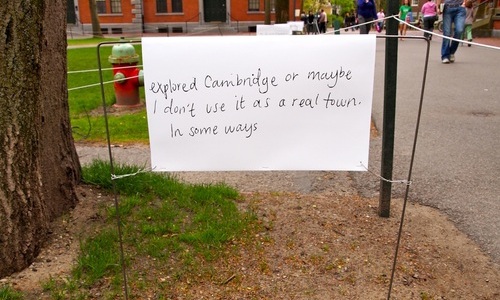 explored Cambridge or maybe
I don't use it as a real town.
In some ways